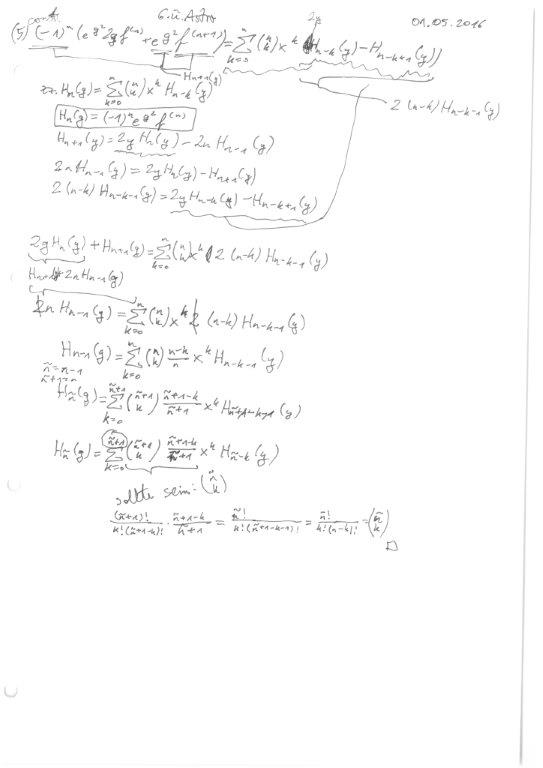 cont. 6.Ü. Astro 01.05.2016
(5) (-1)^n (e^{g²} 2g f^{(n)} + e^{g²} f^{(n+1)}) = Σ_{k=0}^{n} (n k) x^k (2y H_{n-k}(y) - H_{n-k+1}(y))
H_{n+1}(g)
2 (n-k) H_{n-k-1}(y)
zz. H_n(g) = Σ_{k=0}^{n} (n k) x^k H_{n-k}(y)
H_n(g) = (-1)^n e^{g²} f^{(n)}
H_{n+1}(y) = 2y H_n(y) - 2n H_{n-1}(y)
2n H_{n-1}(y) = 2y H_n(y) - H_{n+1}(y)
2 (n-k) H_{n-k-1}(y) = 2y H_{n-k}(y) - H_{n-k+1}(y)
2g H_n(g) + H_{n+1}(g) = Σ_{k=0}^{n} (n k) x^k 2 (n-k) H_{n-k-1}(y)
H_{n+1} + 2n H_{n-1}(g)
2n H_{n-1}(g) = Σ_{k=0}^{n} (n k) x^k 2 (n-k) H_{n-k-1}(y)
H_{n-1}(g) = Σ_{k=0}^{n} (n k) (n-k)/n x^k H_{n-k-1}(y)
ñ = n-1
ñ+1 = n
H_ñ(g) = Σ_{k=0}^{ñ+1} (ñ+1 k) (ñ+1-k)/(ñ+1) x^k H_{ñ+1-k-1}(y)
H_ñ(g) = Σ_{k=0}^{ñ+1} (ñ+1 k) (ñ+1-k)/(ñ+1) x^k H_{ñ-k}(y)
sollte sein: (ñ k)
(ñ+1)!/(k!(ñ+1-k)!) · (ñ+1-k)/(ñ+1) = ñ!/(k!(ñ+1-k-1)!) = ñ!/(k!(n-k)!) = (ñ k)
□